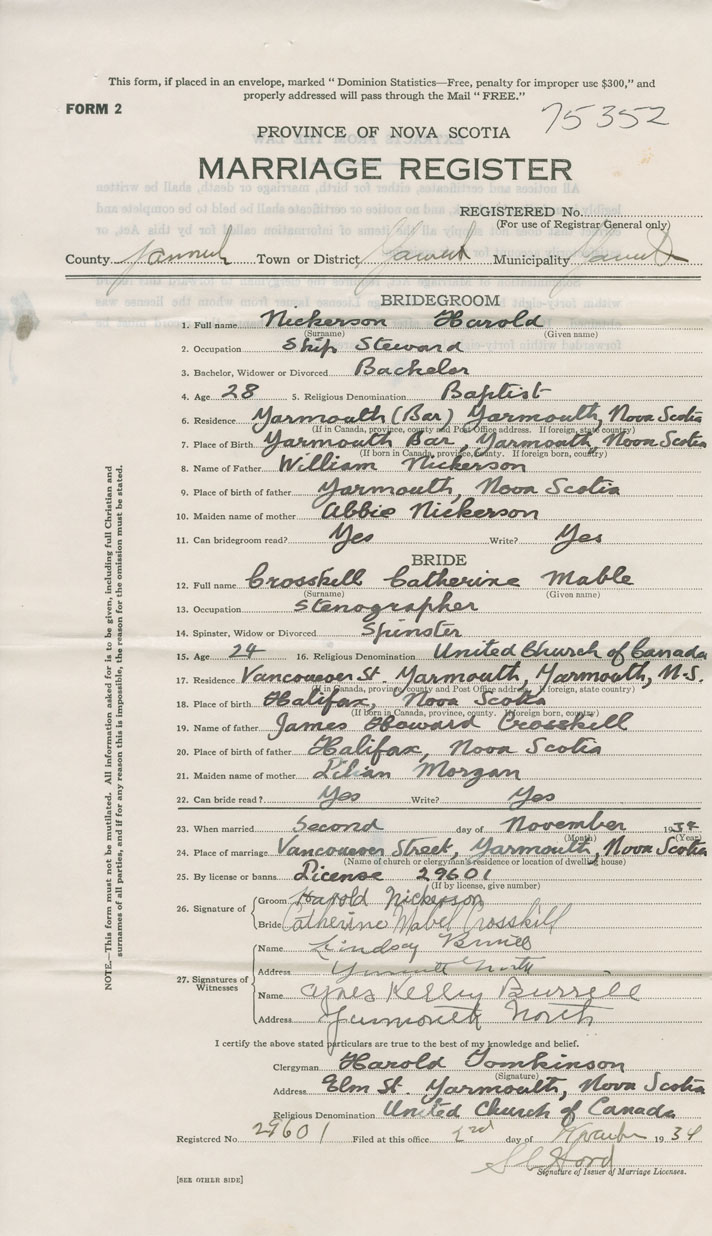 This form, if placed in an envelope, marked “ Dominion Statistics—Free, penalty for improper use $300,” and
properly addressed will pass through the Mail “ FREE.”
FORM 2
75352
PROVINCE OF NOVA SCOTIA
MARRIAGE REGISTER
REGISTERED No.
(For use of Registrar General only)
County Town or District Municipality
BRIDEGROOM
1. Full name Nickerson Harold
(Surname) (Given name)
2. Occupation Ship Steward
3. Bachelor, Widower or Divorced Bachelor
4. Age 28 5. Religious Denomination Baptist
6. Residence Yarmouth (Bar) Yarmouth, Nova Scotia
(If in Canada, province, county and Post Office address. If foreign, state country)
7. Place of Birth Yarmouth Bar, Yarmouth, Nova Scotia
(If born in Canada, province, county. If foreign born, country)
8. Name of Father William Nickerson
9. Place of birth of father Yarmouth, Nova Scotia
10. Maiden name of mother Abbie Nickerson
11. Can bridegroom read? Yes Write? Yes
BRIDE
12. Full name Crosskill Catherine Mable
(Surname) (Given name)
13. Occupation Stenographer
14. Spinster, Widow or Divorced Spinster
15. Age 24 16. Religious Denomination United Church of Canada
17. Residence Vancouver St. Yarmouth, Yarmouth, N.S.
(If in Canada, province, county and Post Office address. If foreign, state country)
18. Place of birth Halifax, Nova Scotia
(If born in Canada, province, county. If foreign born, country)
19. Name of father James Howard Crosskill
20. Place of birth of father Halifax, Nova Scotia
21. Maiden name of mother Lilian Morgan
22. Can bride read? Yes Write? Yes
23. When married Second day of November 1934
(Month) (Year)
24. Place of marriage Vancouver Street, Yarmouth, Nova Scotia
(Name of church or clergyman's residence or location of dwelling house)
25. By license or banns License 29601
(If by license, give number)
26. Signature of Groom Harold Nickerson
Bride Catherine Mabel Crosskill
27. Signatures of Witnesses
Name Lindsay
Address Yarmouth North
Name Kelley Burrell
Address Yarmouth North
I certify the above stated particulars are true to the best of my knowledge and belief.
Clergyman Harold Tomkinson
(Signature)
Address Elm St. Yarmouth, Nova Scotia
Religious Denomination United Church of Canada
Registered No. 29601 Filed at this office 2nd day of November 1934
Signature of Issuer of Marriage Licenses.
[SEE OTHER SIDE]
NOTE.—This form must not be mutilated. All information asked for is to be given, including full Christian and
surnames of all parties, and if for any reason this is impossible, the reason for the omission must be stated.